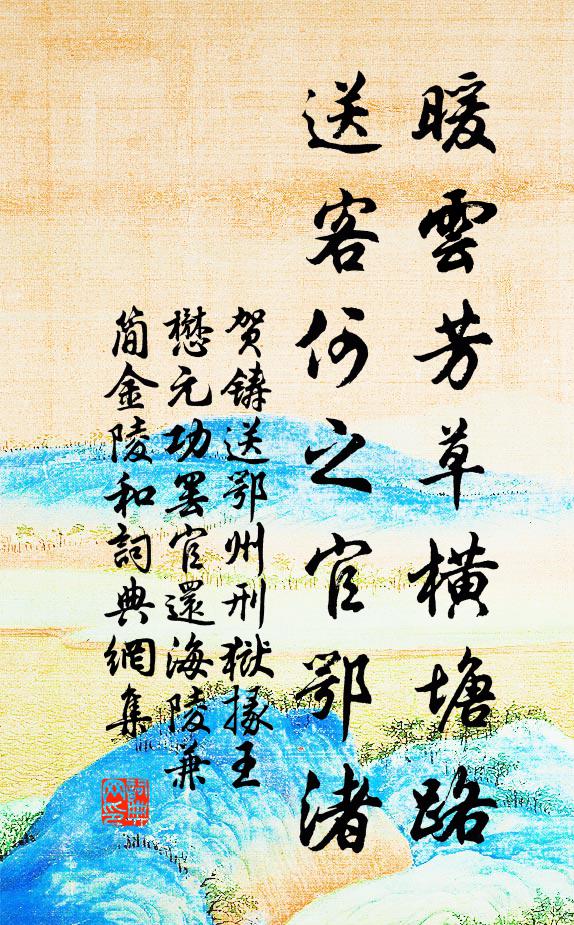 暖雲芳草橫塘路
送客何之官鄂渚
賀鑄送鄂州刑獄掾王
懋元功罷官還海陵兼
簡金陵和詞典網集